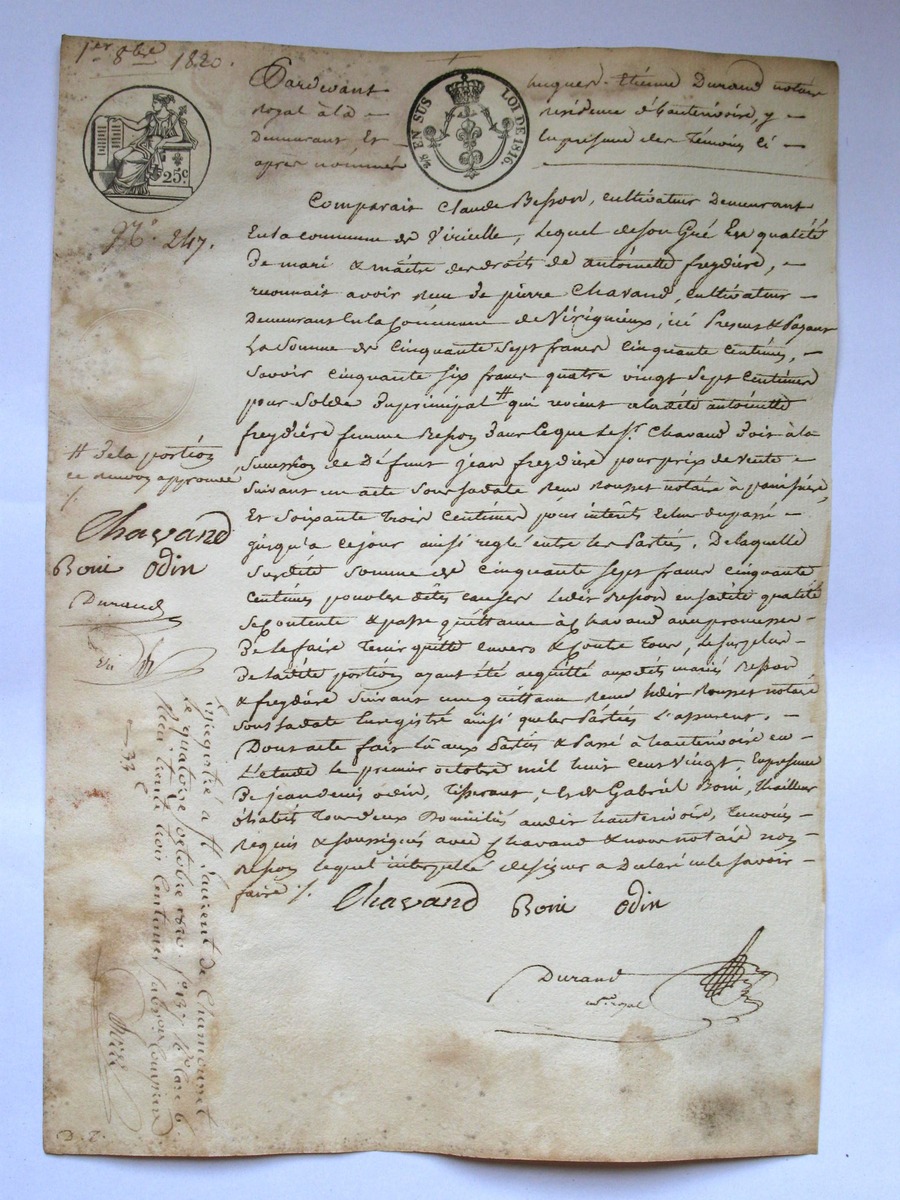 1er 8bre 1820.
25c
⅕ EN SUS LOI DE 1816.
No. 247.
Pardevant hugues Etiénne Durand notaire
royal à la résidence d'hauterivoire, y
Demeurant Et En présence des Témoins ci
après nommés
Comparait Claude Besson, cultivateur Demeurant
En la commune de Viricelle, lequel de son Gré En qualité
De mari & maître des droits de antoinette freydière,
reconnait avoir reçu de pierre Chavand, cultivateur
Demeurant En la Commune de Virigneux, ici Présent & Payant
La Somme de Cinquante Sept francs Cinquante Centimes,
Savoir Cinquante Six francs quatre vingt Sept Centimes
pour Solde Du principal # qui revient à la dite antoinette
freydière femme Besson Dans Ce que le Sr. Chavand Doit à la
Succession de Défunt jean freydière pour prix de vente
Suivant un acte Sous Sa date Reçu Rousset notaire à
Et Soixante Trois Centimes pour intérêts
jusqu'a ce jour ainsi reglé entre les Parties. De laquelle
Surdite Somme de Cinquante Sept francs Cinquante
Centimes pour les dites Causes Ledit Besson en sa dite qualité
Se Contente & passe quittance à Chavand avec promesse
De le faire Tenir quitte envers & Contre Tous, le Surplus
De la dite portion ayant été acquitté aux dits mariés Besson
& freydière Suivant une quittance Reçue ledit Rousset notaire
Sous Sa date Enregistré ainsi que les Parties L'assurent.
Dont acte fait Lu aux Parties & Passé à hauterivoire en
L'etude le premier octobre mil huit Cent Vingt, En présence
De jean denis odin, Tisserant, & de Gabriel Boni, Thailleur
d'habits Tous deux Domiciliés audit hauterivoire, Temoins
Requis & Soussignés avec Chavand & nous notaire non
Besson lequel interpellé de signer a Déclaré ne le Savoir
faire ./.
Chavand Boni Odin
Durand
nre. royal
# De la portion
ce renvoi approuvé
Chavand
Boni Odin
Durand
Enregistré à St. Laurent de Chamousset
le quatorze octobre 1820. fo. 137
Reçu Trente trois Centimes
33
D. P.